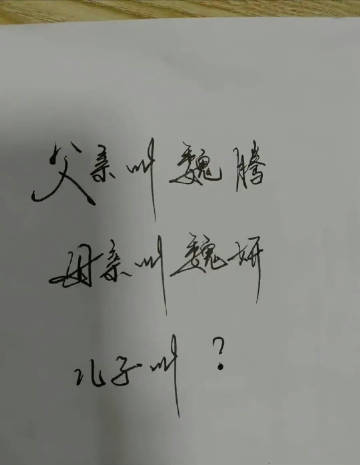 父亲叫魏腾
母亲叫魏妍
儿子叫？